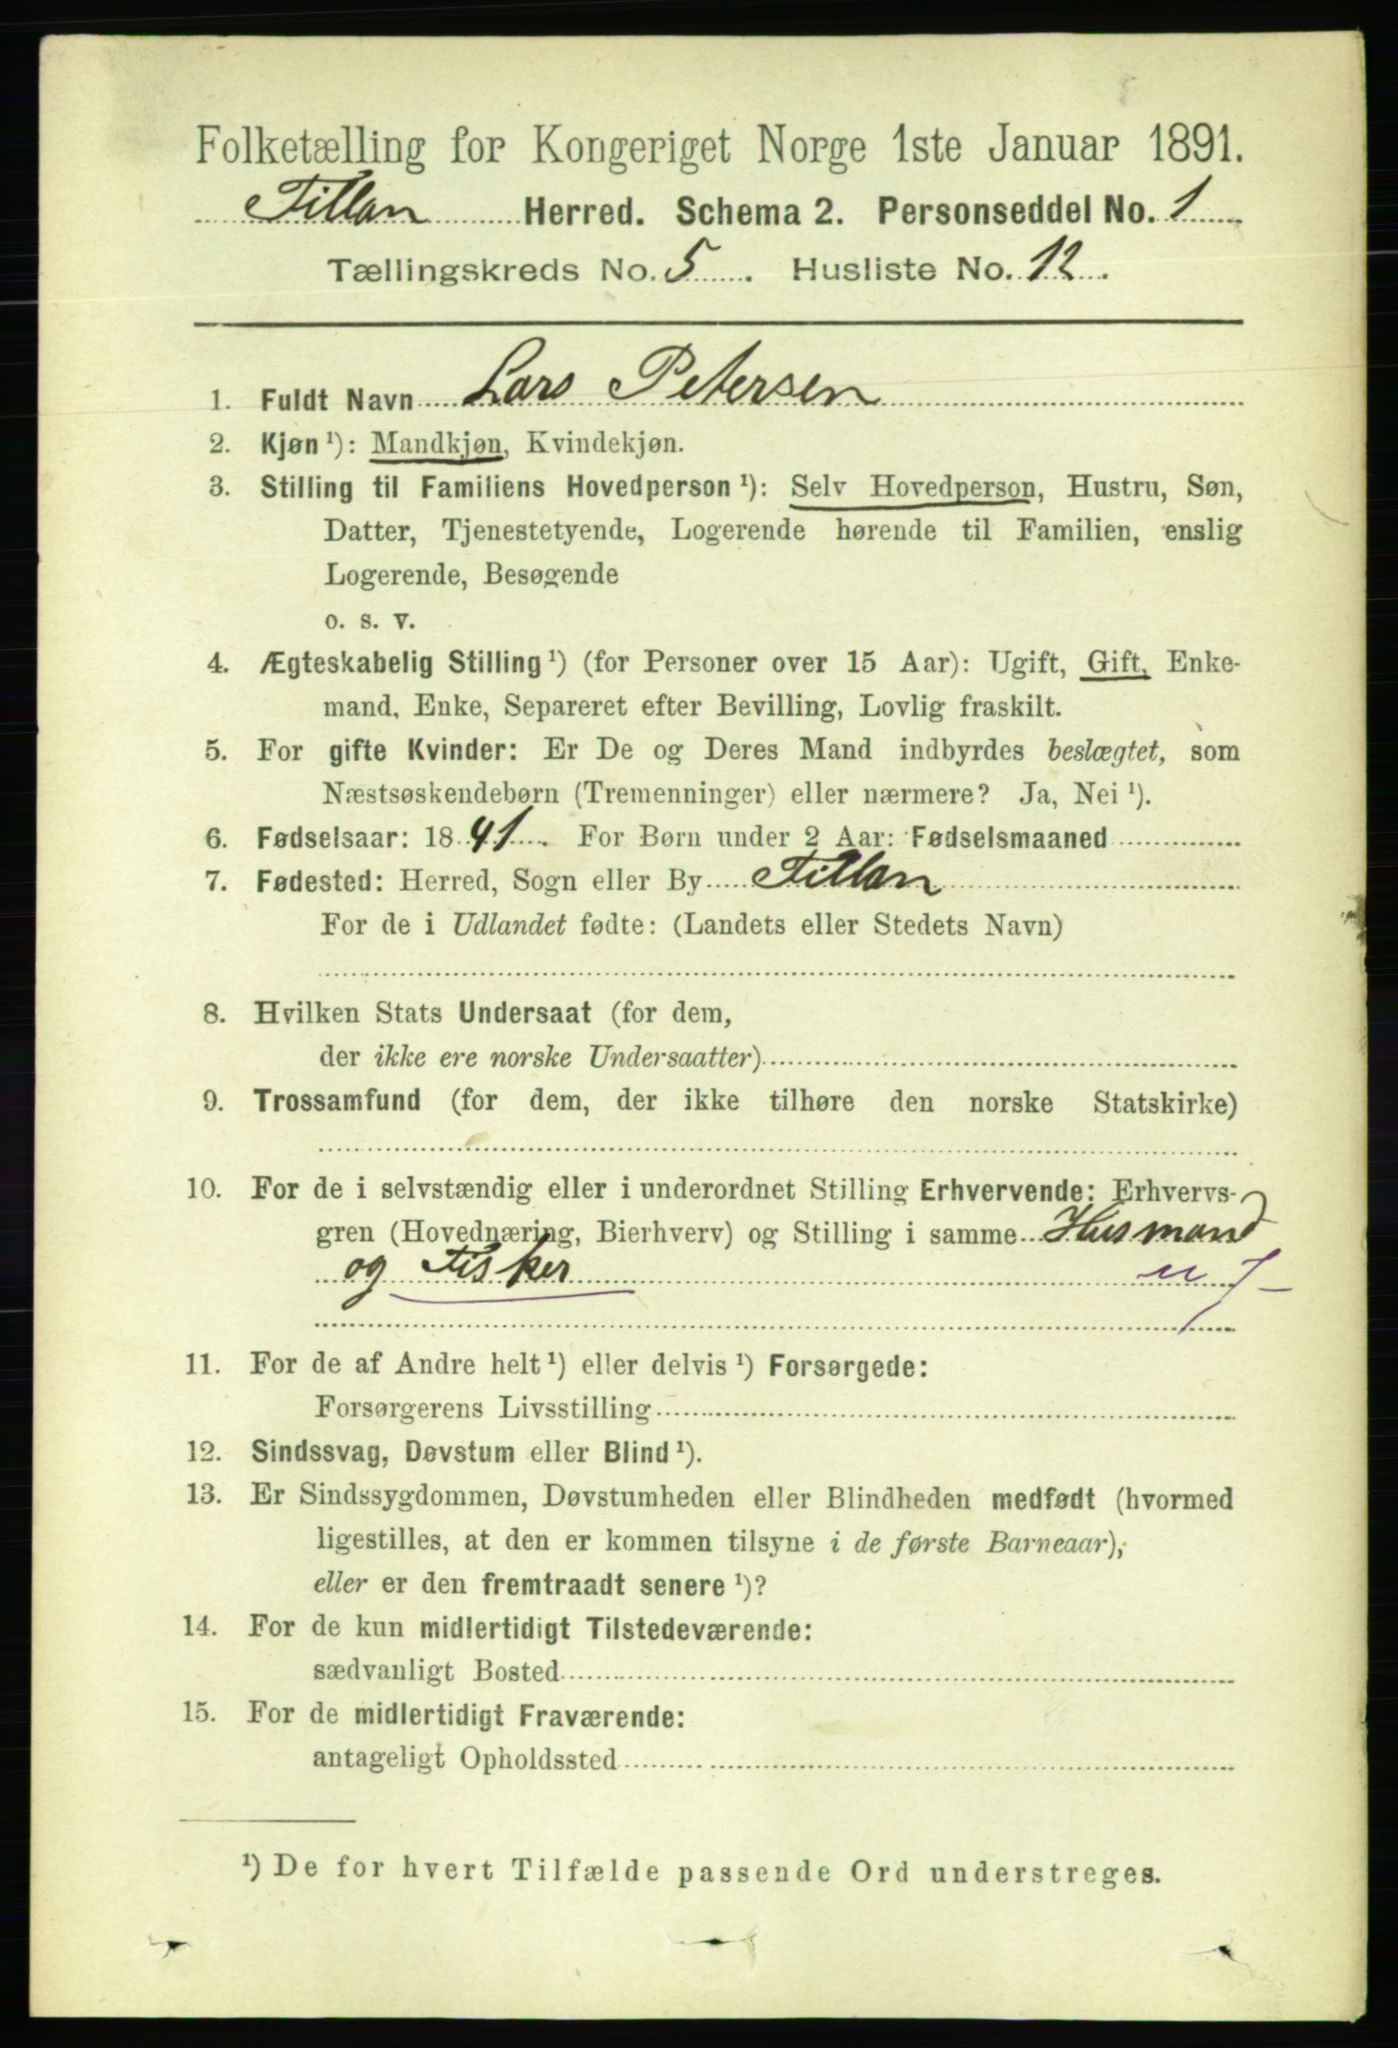 Folketælling for Kongeriget Norge 1ste Januar 1891.
Fillan Herred. Schema 2. Personseddel No. 1
Tællingskreds No. 5. Husliste No. 12.
1. Fuldt Navn Lars Petersen
2. Kjøn ¹): Mandkjøn, Kvindekjøn.
3. Stilling til Familiens Hovedperson ¹): Selv Hovedperson, Hustru, Søn,
Datter, Tjenestetyende, Logerende hørende til Familien, enslig
Logerende, Besøgende
o. s. v.
4. Ægteskabelig Stilling ¹) (for Personer over 15 Aar): Ugift, Gift, Enke-
mand, Enke, Separeret efter Bevilling, Lovlig fraskilt.
5. For gifte Kvinder: Er De og Deres Mand indbyrdes beslægtet, som
Næstsøskendebørn (Tremenninger) eller nærmere? Ja, Nei ¹).
6. Fødselsaar: 1841. For Børn under 2 Aar: Fødselsmaaned
7. Fødested: Herred, Sogn eller By Fillan
For de i Udlandet fødte: (Landets eller Stedets Navn)
8. Hvilken Stats Undersaat (for dem,
der ikke ere norske Undersaatter)
9. Trossamfund (for dem, der ikke tilhøre den norske Statskirke)
10. For de i selvstændig eller i underordnet Stilling Erhvervende: Erhvervs-
gren (Hovednæring, Bierhverv) og Stilling i samme Husmand
og Fisker
11. For de af Andre helt ¹) eller delvis ¹) Forsørgede:
Forsørgerens Livsstilling
12. Sindssvag, Døvstum eller Blind ¹).
13. Er Sindssygdommen, Døvstumheden eller Blindheden medfødt (hvormed
ligestilles, at den er kommen tilsyne i de første Barneaar),
eller er den fremtraadt senere ¹)?
14. For de kun midlertidigt Tilstedeværende:
sædvanligt Bosted
15. For de midlertidigt Fraværende:
antageligt Opholdssted
¹) De for hvert Tilfælde passende Ord understreges.